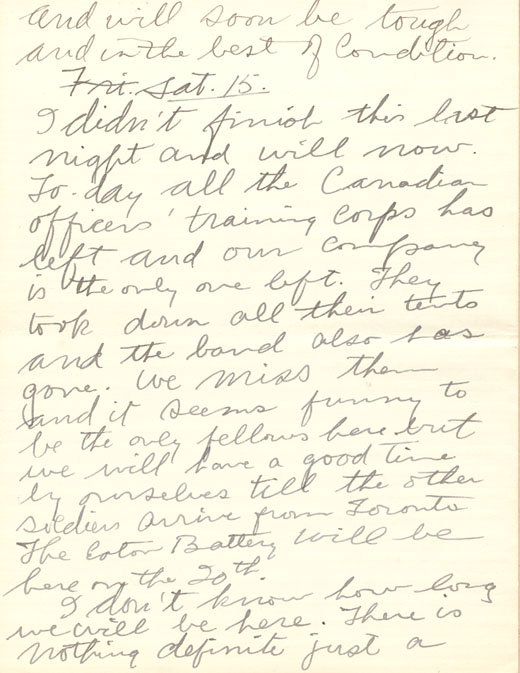 and will soon be tough
and in the best of Condition.
Fri. Sat. 15.
I didn't finish this last
night and will now.
To-day all the Canadian
officers' training corps has
left and our company
is the only one left. They
took down all their tents
and the band also has
gone. We miss them
and it seems funny to
be the only fellows here but
we will have a good time
by ourselves till the other
soldiers arrive from Toronto
The Eaton Battery will be
here on the 20th.
I don't know how long
we will be here. There is
nothing definite just a